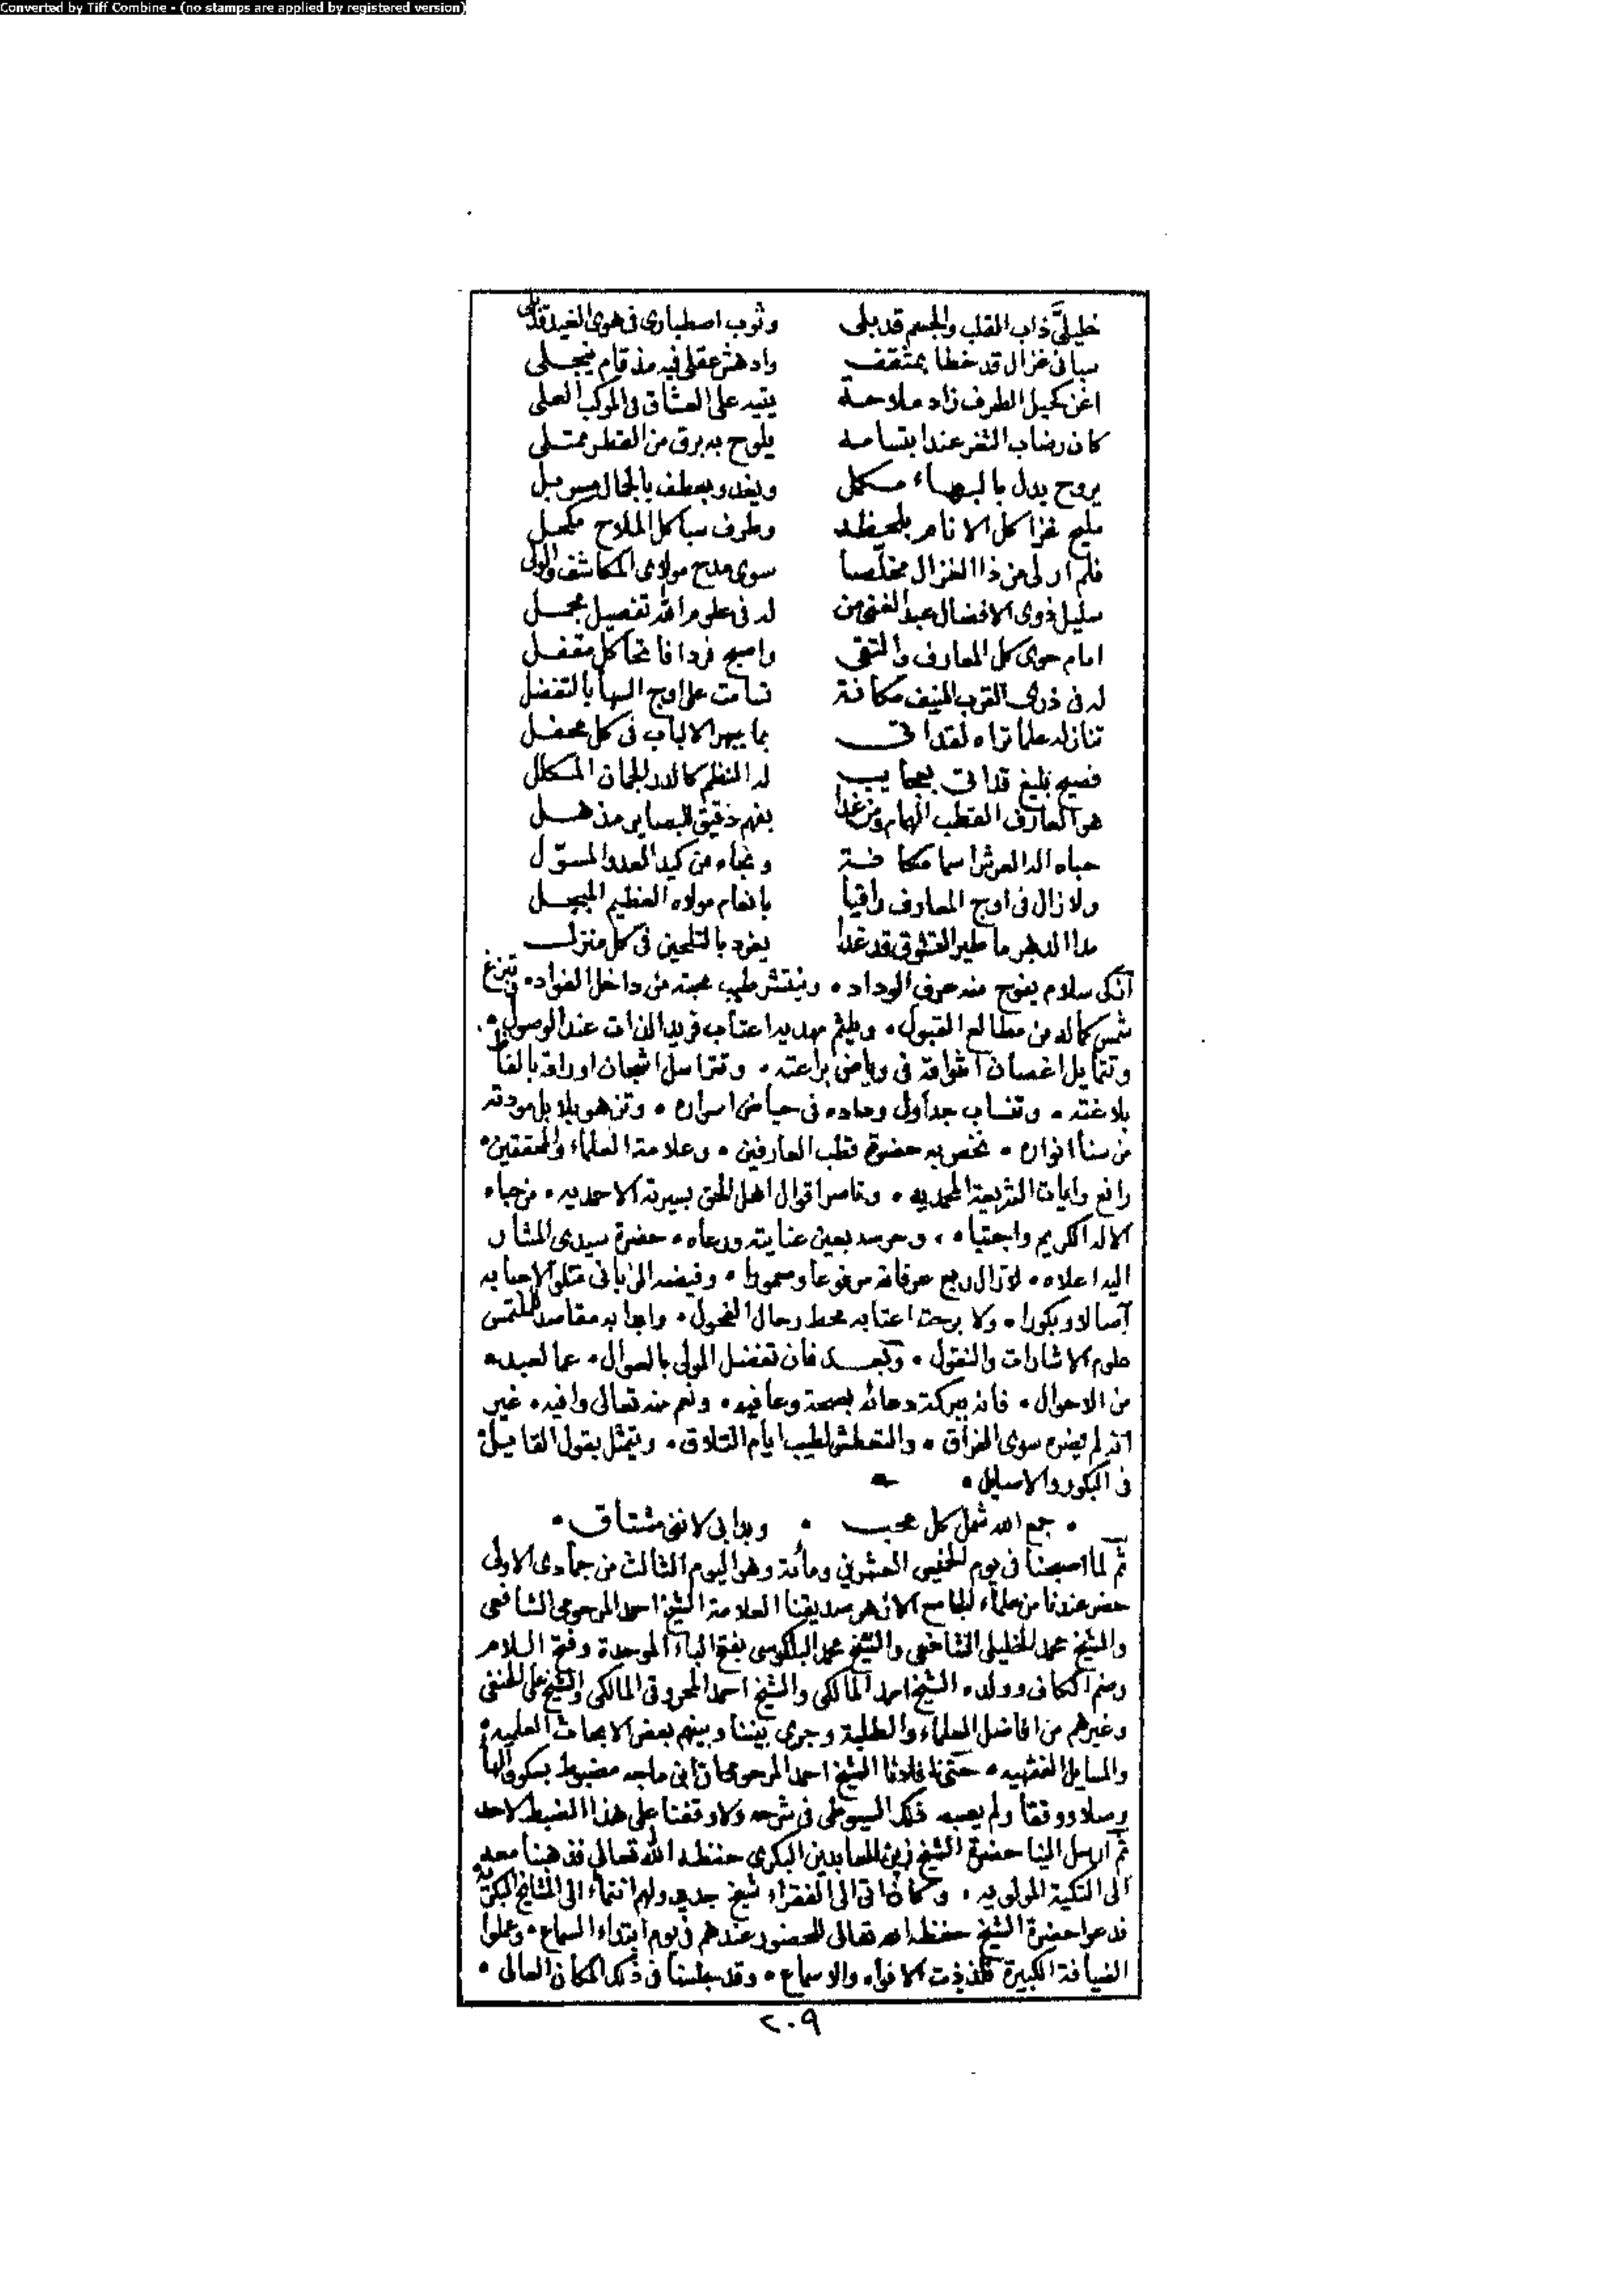 Converted by Tiff Combine - (no stamps are applied by registered version)
خليليَّ ذاب القلب والجسم قد بلى وثوب اصطبارى فى هوى الغيد قد بلى
سبانى غزال قد خطا بمثقف وادهش عقلى فيه مذ قام ينجلى
اغن كحيل الطرف زاد ملاحة يتيه على العشاق فى الموكب العلى
كان رضاب الثغر عند ابتسامه يلوح به برق من القطر ممتلى
يروح بدل بالبهاء مكمل ويغدو بعطف بالجمال مسربل
مليح غزا كل الانام بلحظه وطرف سبا كل الملاح مكحل
فلم ار لى من ذا الغزال مخلّصا سوى مدح مولاى المكاشف والولى
سليل ذوى الافضال عبد الغنى من له فى علوم الله تفصيل مجمل
امام حوى كل المعارف والتقى واصبح فردا فاتحا كل مقفل
له فى ذرى القرب المنيف مكانة تسامت على اوج السها بالتفضل
تنازله علما تراه لقد اتى بما يبهر الالباب فى كل محفل
فصيح بليغ قد اتى بعجايب له النظم كالدر الجمان المكلل
هو العارف القطب الهمام ومن غدا بفهم دقيق للبصاير مذهل
حباه اله العرش اسما مكانة ونجاه من كيد العدو المسوّل
ولا زال فى اوج المعارف راقيا بانعام مولاه العظيم المبجل
مدا الدهر ما طير التشوق قد غدا يغرد بالتلحين فى كل منزل
آزكى سلام يفوح منه عرف الوداد • وينتشر طيب محبته من داخل الفؤاد • وتبزغ
شمس كماله من مطالع القبول • ويلثم مهديه اعتاب فريد الذات عند الوصول •
وتتمايل اغصان اشواقه فى رياض براعته • وتتراسل اشجان اوراقه بالفاظ
بلاغته • وتنساب جداول وداده فى حياض اسراره • وتزهو بلابل مودته
من سنا انواره • نخص به حضرة قطب العارفين • وعلامة العلماء والمحققين •
رافع رايات الشريعة المحمديه • وناصر اقوال اهل الحق بسيرته الاحمديه • من حباه
الاله الكريم واجتباه • وحرسه بعين عنايته ورعاه • حضرة سيدى المشار
اليه اعلاه • لا زال ربع عرفانه مرفوعا ومعمورا • وفيضه الربانى متلو الاحبابه
آصالا وبكورا • ولا برحت اعتابه محط رحال الفحول • وابوابه مقاصد لملتمس
علوم الاشارات والنقول • وبعد فان تفضل المولى بالسوال • عما لعبيده
من الاحوال • فانه ببركة دعائه بصحة وعافيه • ونعم منه تعالى وافيه • غير
انه لم يضره سوى الفراق • والتعطش لطيب ايام التلاق • ويتمثل بقول القايل
فى البكور والاصيل •
• جمع الله شمل كل محب • وبدا بى لاننى مشتاق •
ثم لما اصبحنا فى يوم الخميس العشرين ومائة وهو اليوم الثالث من جمادى الاولى
حضر عندنا من علماء الجامع الازهر صديقنا العلامة الشيخ احمد المرحومى الشافعى
والشيخ محمد الخليلى الشافعى والشيخ محمد البلكوسى بفتح الباء الموحدة وفتح اللام
وضم الكاف وولده الشيخ احمد المالكى والشيخ احمد المحروقى المالكى والشيخ على الحنفى
وغيرهم من افاضل العلماء والطلبة وجرى بيننا وبينهم بعض الابحاث العلميه •
والمسايل الفقهيه • حتى افادنا الشيخ احمد المرحومى ان ابن ماجه مضبوط بسكون الها
وصلا ووقفا ولم يعبه ذلك السيوطى فى شرحه ولا وقفنا على هذا الضبط لاحد
ثم ارسل الينا حضرة الشيخ زين العابدين البكرى حفظه الله تعالى فذهبنا معه
الى التكية المولويه • وكان اتى الى الفقراء شيخ جديد ولهم انتماء الى المشايخ البكريه
فدعوا حضرة الشيخ حفظه الله تعالى للحضور عندهم فى يوم ابتداء السماع • وعملوا
الضيافة الكبيرة فلذذت الافواه والاسماع • وقد جلسنا فى ذلك المكان العالى •
٢٠٩